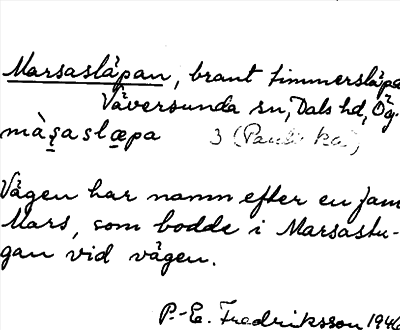 Marsasläpan, brant timmersläpa
Väversunda sn, Dals hd, Ög.
màs̥aslæpa 3 (Pauli ka)
Vägen har namn efter en fam
Mars, som bodde i Marsastu-
gan vid vägen.
P.-E. Fredriksson 1946